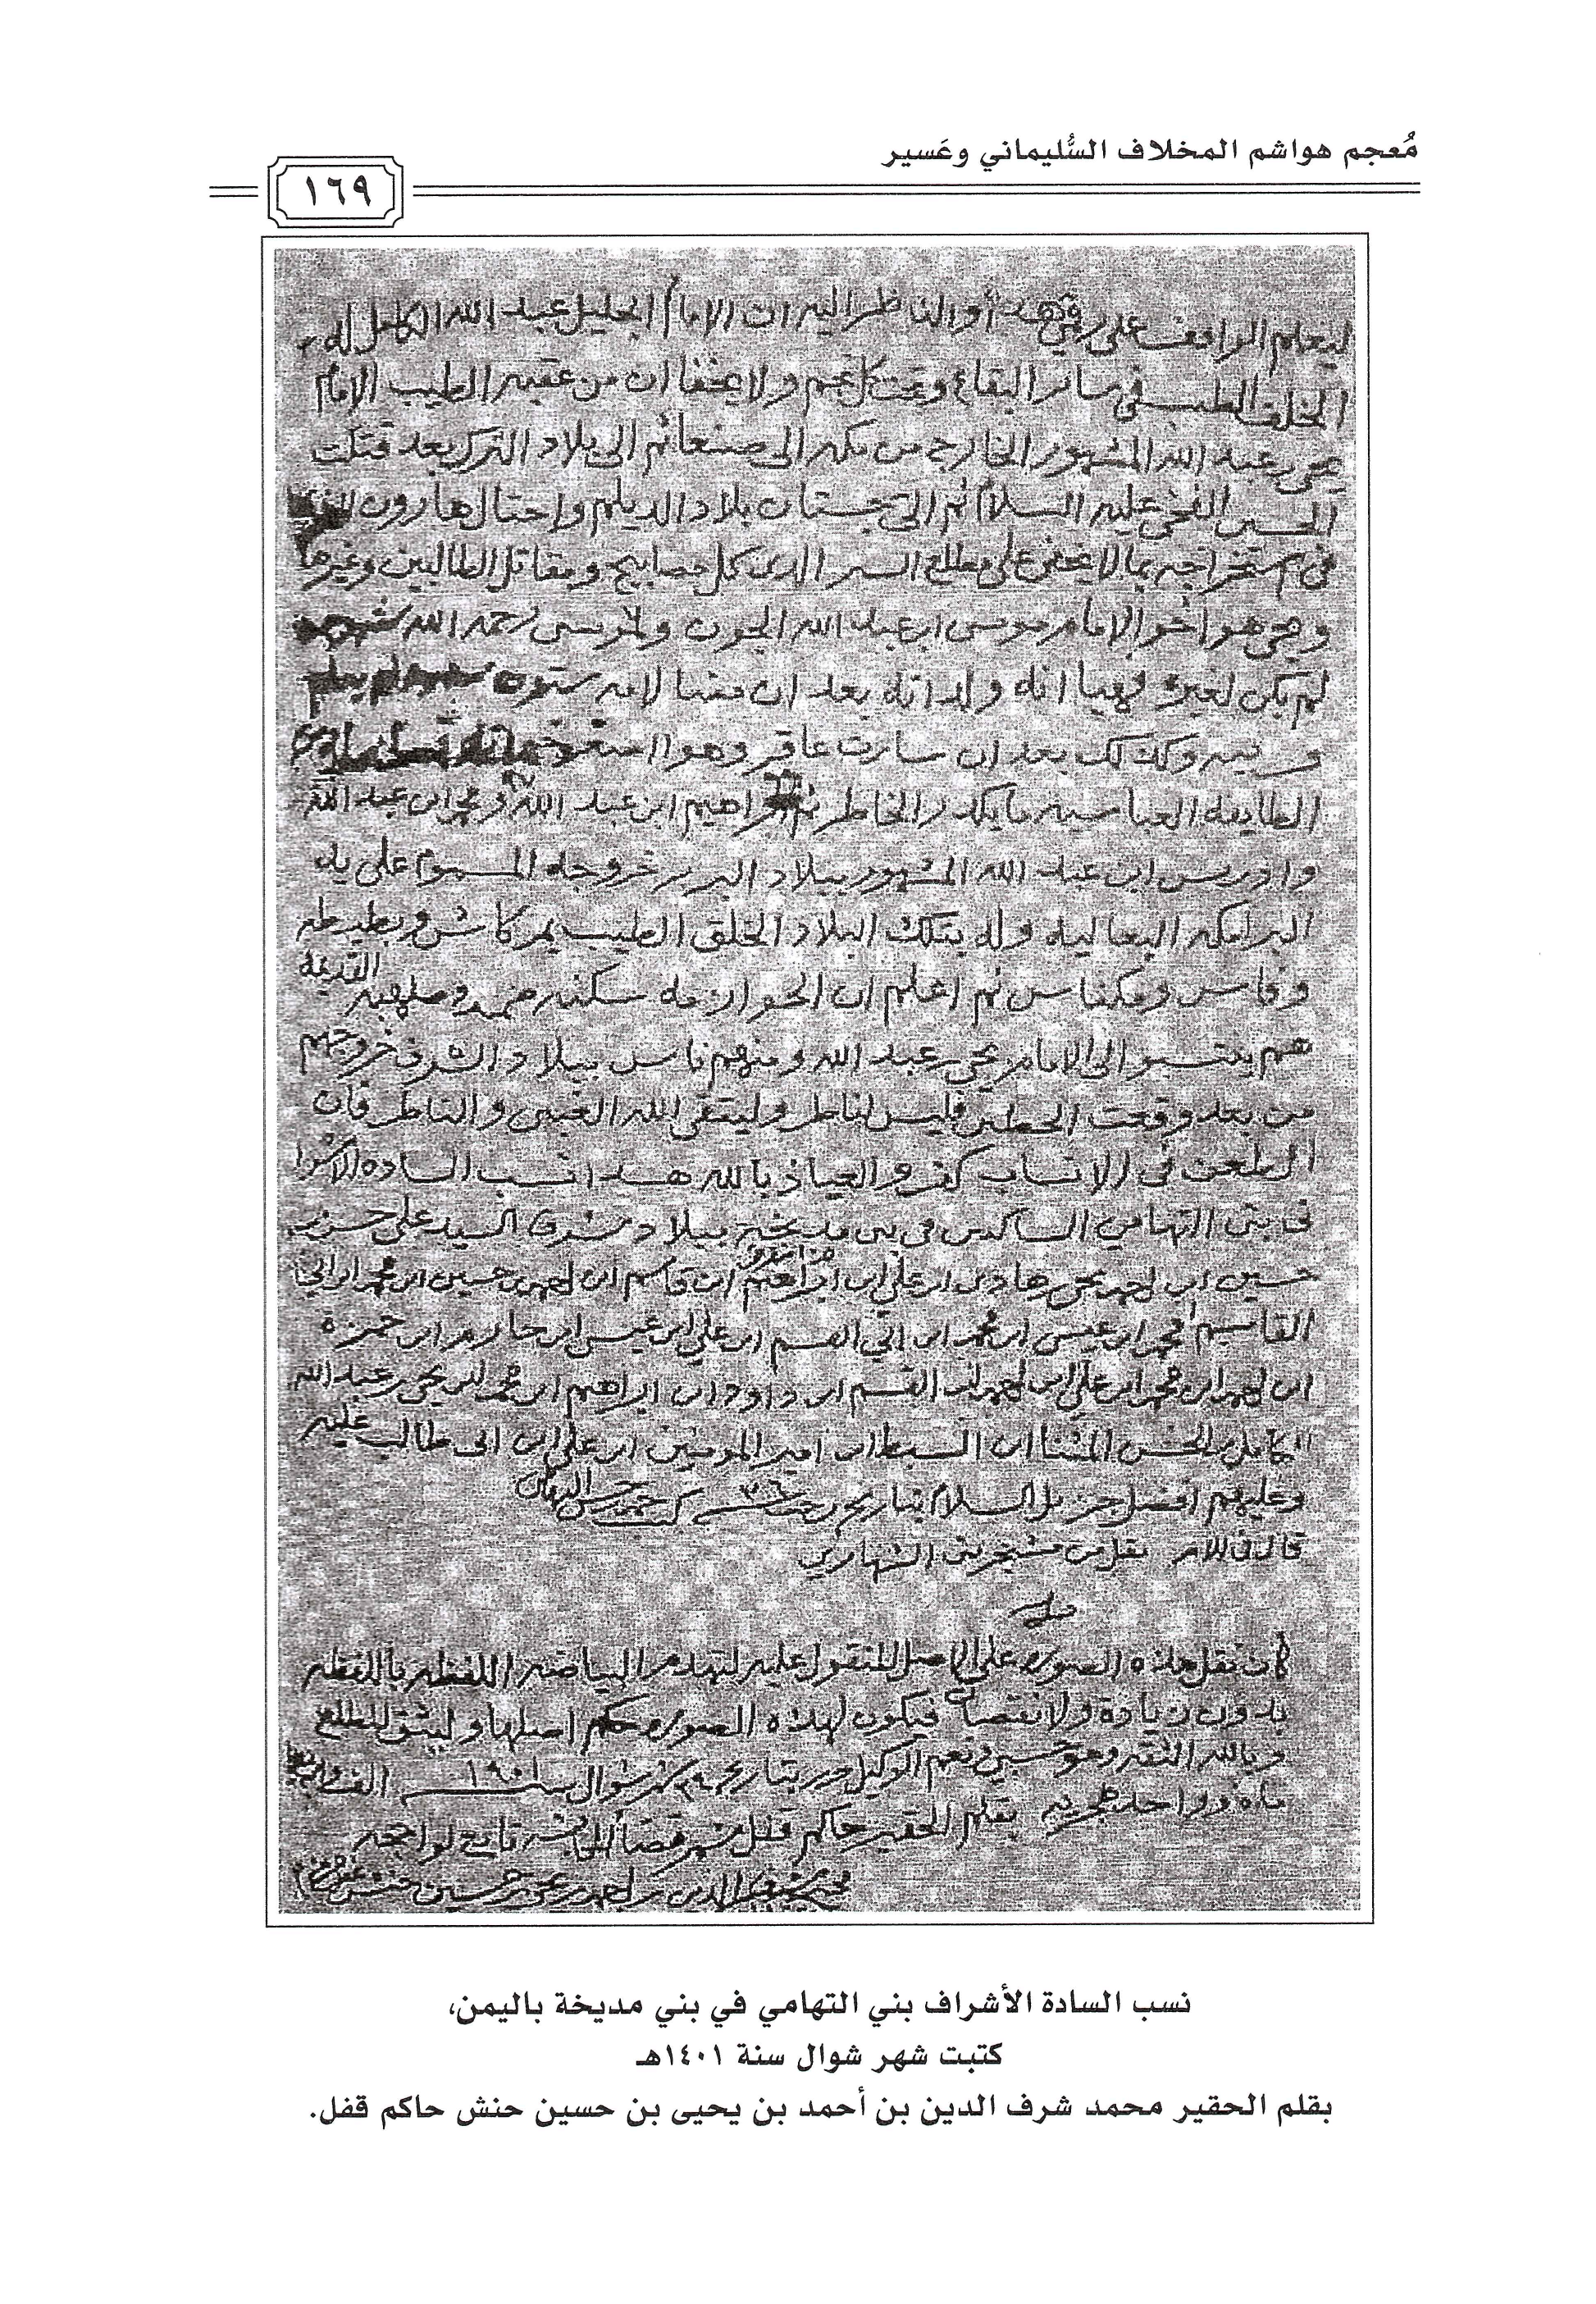 مُعجم هواشم المخلاف السُّليماني وعَسير
١٦٩
ليعلم الواقف على رقي هذا والناظر اليه ان الامام الجليل عبد الله الكامل له
الخلف الطيب في سائر البقاع وتحت كل نجم ولا يخفا ان من عقبه الطيب الامام
يحي بن عبد الله المشهور الخارج من مكه الى صنعا ثم الى بلاد الترك بعد قتلت
الحسين الفخي عليه السلام ثم الى بلاد الديلم واحتال هارون
في استخراجه بما لا يخفى على مطلع السير الذي كل مصابيح ومقاتل الطالبين وغيرها
ويحي هو اخو الامام موسى ابن عبد الله الجون ولموسى رحمه الله
لم يكن لغيره فهيا انه ولداته بعد ان مضا لامه ستون
وكذلك بعد ان سارت عاقر وهو
الطايفه العباسيه ما يكدر الخاطر ثم ابراهيم ابن عبد الله ومحمد ابن عبد الله
وادريس ابن عبد الله المشهور ببلاد البربر خروجه المسموم على يد
البرامكه وله بتلك البلاد الخلق الطيب
وفاس ومكناس ثم اعلم ان الحوازمه سكنه ضمد وصلهبه القديمة
هم ينتسبوا الى الامام يحي بن عبد الله ومنهم ناس ببلاد الشرف خروجهم
من بعد وقعت فليس لناظر وليتقي الله والناظر فان
الطعن في الانساب كفر والعياذ بالله هذا نسب الساده الاشرا
ف بني التهامي الساكنين في بني مديخة ببلاد السيد علي
حسين ابن احمد يحي هادي ابن علي ابن ابراهيم ابن قاسم ابن احمد حسين ابن محمد ابن
القاسم محمد ابن عيسى ابن محمد ابن ابي القسم ابن علي ابن عيسى ابن حازم ابن حمزة
ابن احمد ابن محمد ابن علي ابن احمد ابن القسم ابن داود ابن ابراهيم ابن محمد ابن يحي بن عبد الله
الكامل بن الحسن المثنا ابن السبط ابن امير المومنين ابن علي ابن ابي طالب عليه
وعليهم افضل جزيل السلام بتاريخ رجب
قال في الام نقل من مشجر بني التهامي
كان نقل هذه الصوره على الاصل المنقول عليه لتهدم البياضه اللفظه باللفظه
بدون زيادة ولا نقصان فيكون لهذه الصوره حكم اصلها وليثق المطلع
وبالله الثقه وهو حسبي ونعم الوكيل حرر بتاريخ شهر شوال سنة ١٤٠١
بقلم الحقير حاكم قفل تابع لواحجه
محمد شرف الدين بن احمد بن يحي بن حسين حنش
نسب السادة الأشراف بني التهامي في بني مديخة باليمن،
كتبت شهر شوال سنة ١٤٠١هـ
بقلم الحقير محمد شرف الدين بن أحمد بن يحيى بن حسين حنش حاكم قفل.